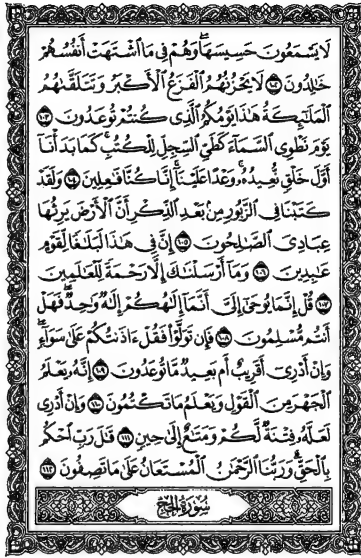 لَا يَسْمَعُونَ حَسِيسَهَا ۖ وَهُمْ فِى مَا ٱشْتَهَتْ أَنفُسُهُمْ
خَٰلِدُونَ ١٠٢ لَا يَحْزُنُهُمُ ٱلْفَزَعُ ٱلْأَكْبَرُ وَتَتَلَقَّىٰهُمُ
ٱلْمَلَٰٓئِكَةُ هَٰذَا يَوْمُكُمُ ٱلَّذِى كُنتُمْ تُوعَدُونَ ١٠٣
يَوْمَ نَطْوِى ٱلسَّمَآءَ كَطَىِّ ٱلسِّجِلِّ لِلْكُتُبِ ۚ كَمَا بَدَأْنَآ
أَوَّلَ خَلْقٍ نُّعِيدُهُۥ ۚ وَعْدًا عَلَيْنَآ ۚ إِنَّا كُنَّا فَٰعِلِينَ ١٠٤ وَلَقَدْ
كَتَبْنَا فِى ٱلزَّبُورِ مِنۢ بَعْدِ ٱلذِّكْرِ أَنَّ ٱلْأَرْضَ يَرِثُهَا
عِبَادِىَ ٱلصَّٰلِحُونَ ١٠٥ إِنَّ فِى هَٰذَا لَبَلَٰغًا لِّقَوْمٍ
عَٰبِدِينَ ١٠٦ وَمَآ أَرْسَلْنَٰكَ إِلَّا رَحْمَةً لِّلْعَٰلَمِينَ
١٠٧ قُلْ إِنَّمَا يُوحَىٰٓ إِلَىَّ أَنَّمَآ إِلَٰهُكُمْ إِلَٰهٌ وَٰحِدٌ ۖ فَهَلْ
أَنتُم مُّسْلِمُونَ ١٠٨ فَإِن تَوَلَّوْا۟ فَقُلْ ءَاذَنتُكُمْ عَلَىٰ سَوَآءٍ ۖ
وَإِنْ أَدْرِىٓ أَقَرِيبٌ أَم بَعِيدٌ مَّا تُوعَدُونَ ١٠٩ إِنَّهُۥ يَعْلَمُ
ٱلْجَهْرَ مِنَ ٱلْقَوْلِ وَيَعْلَمُ مَا تَكْتُمُونَ ١١٠ وَإِنْ أَدْرِى
لَعَلَّهُۥ فِتْنَةٌ لَّكُمْ وَمَتَٰعٌ إِلَىٰ حِينٍ ١١١ قَٰلَ رَبِّ ٱحْكُم
بِٱلْحَقِّ ۗ وَرَبُّنَا ٱلرَّحْمَٰنُ ٱلْمُسْتَعَانُ عَلَىٰ مَا تَصِفُونَ ١١٢
سُورَةُ الحَجّ